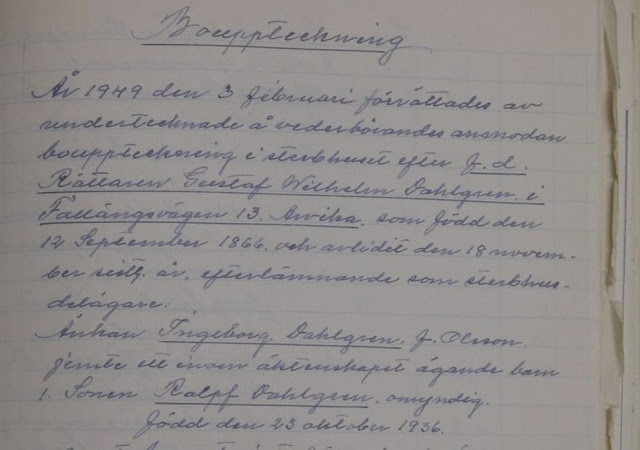 Bouppteckning
År 1949 den 3 februari förrättades av
undertecknade å vederbörandes anmodan
bouppteckning i sterbhuset efter f. d.
Rättaren Gustaf Wilhelm Dahlgren i
Fallängsvägen 13. Arvika, som född den
12 September 1866. och avlidit den 18 novem-
ber sistl. år. efterlämnande som sterbhus-
delägare:
Änkan Ingeborg Dahlgren. f. Olsson.
jemte ett inom äktenskapet ägande barn
1. Sonen Ralpf Dahlgren. omyndig.
född den 23 oktober 1936.